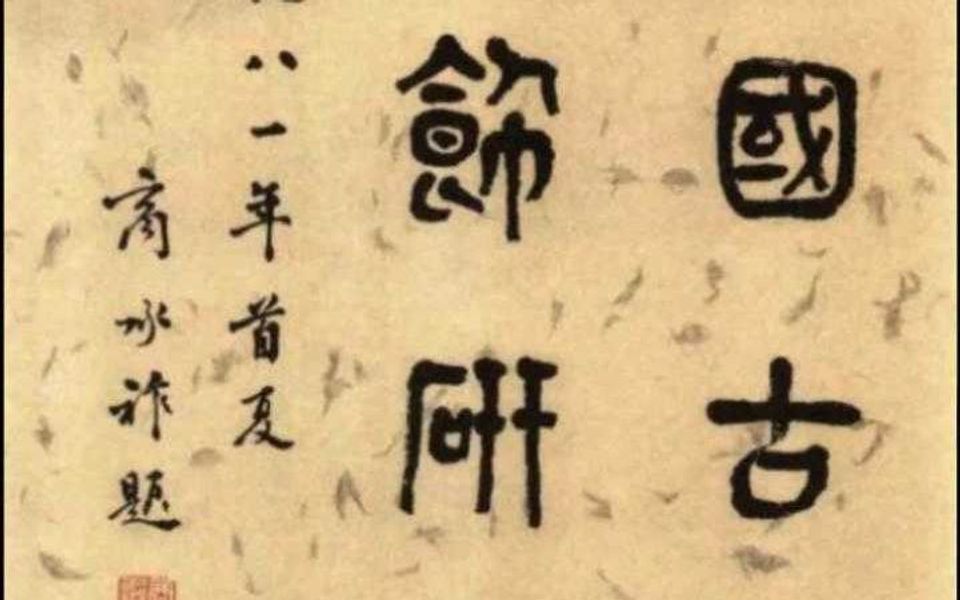 國古
飾研
八一年首夏
商承祚題